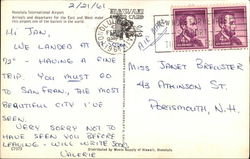 2/21/61
Honolulu International Airport
Arrivals and departures for the East and West make
this airport one of the busiest in the world.
Hi Jan,
We landed at
92° - Having a fine
trip. You must go
to San Fran, the most
beautiful city I've
seen.
Very sorry not to
have seen you before
leaving - will write soon
Valerie
Air Mail
Miss Janet Brewster
43 Atkinson St.
Portsmouth, N.H.
C7073
Distributed by Movie Supply of Hawaii, Honolulu